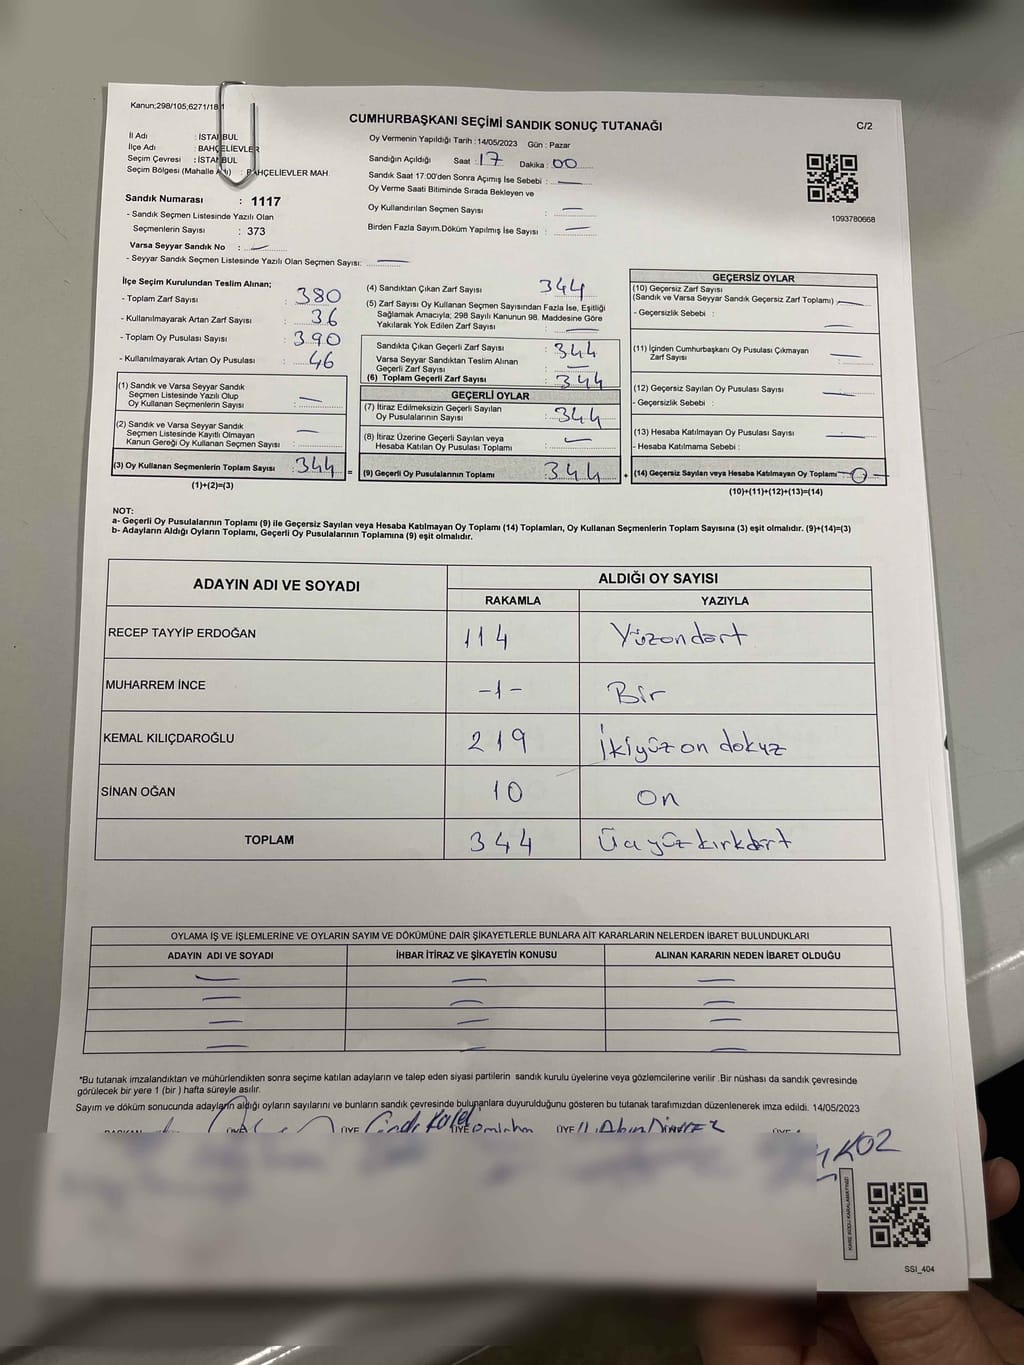 Kanun;298/105;6271/18 1
CUMHURBAŞKANI SEÇİMİ SANDIK SONUÇ TUTANAĞI
C/2
İl Adı : İSTANBUL
İlçe Adı : BAHÇELİEVLER
Seçim Çevresi : İSTANBUL
Seçim Bölgesi (Mahalle Adı) : BAHÇELİEVLER MAH.
Oy Vermenin Yapıldığı Tarih : 14/05/2023 Gün : Pazar
Sandığın Açıldığı Saat : 17 Dakika : 00
Sandık Saat 17.00'den Sonra Açımış İse Sebebi : —
Oy Verme Saati Bitiminde Sırada Bekleyen ve
Oy Kullandırılan Seçmen Sayısı : —
Birden Fazla Sayım,Döküm Yapılmış İse Sayısı : —
1093780668
Sandık Numarası : 1117
- Sandık Seçmen Listesinde Yazılı Olan
Seçmenlerin Sayısı : 373
Varsa Seyyar Sandık No : —
- Seyyar Sandık Seçmen Listesinde Yazılı Olan Seçmen Sayısı: —
İlçe Seçim Kurulundan Teslim Alınan;
- Toplam Zarf Sayısı : 380
- Kullanılmayarak Artan Zarf Sayısı : 36
- Toplam Oy Pusulası Sayısı : 390
- Kullanılmayarak Artan Oy Pusulası : 46
(1) Sandık ve Varsa Seyyar Sandık
Seçmen Listesinde Yazılı Olup
Oy Kullanan Seçmenlerin Sayısı : —
(2) Sandık ve Varsa Seyyar Sandık
Seçmen Listesinde Kayıtlı Olmayan
Kanun Gereği Oy Kullanan Seçmen Sayısı : —
(3) Oy Kullanan Seçmenlerin Toplam Sayısı : 344 =
(1)+(2)=(3)
(4) Sandıktan Çıkan Zarf Sayısı : 344
(5) Zarf Sayısı Oy Kullanan Seçmen Sayısından Fazla İse, Eşitliği
Sağlamak Amacıyla; 298 Sayılı Kanunun 98. Maddesine Göre
Yakılarak Yok Edilen Zarf Sayısı : —
Sandıkta Çıkan Geçerli Zarf Sayısı : 344
Varsa Seyyar Sandıktan Teslim Alınan
Geçerli Zarf Sayısı : —
(6) Toplam Geçerli Zarf Sayısı : 344
GEÇERLİ OYLAR
(7) İtiraz Edilmeksizin Geçerli Sayılan
Oy Pusulalarının Sayısı : 344
(8) İtiraz Üzerine Geçerli Sayılan veya
Hesaba Katılan Oy Pusulası Toplamı : —
(9) Geçerli Oy Pusulalarının Toplamı : 344 +
GEÇERSİZ OYLAR
(10) Geçersiz Zarf Sayısı
(Sandık ve Varsa Seyyar Sandık Geçersiz Zarf Toplamı) : —
- Geçersizlik Sebebi : —
(11) İçinden Cumhurbaşkanı Oy Pusulası Çıkmayan
Zarf Sayısı : —
(12) Geçersiz Sayılan Oy Pusulası Sayısı : —
- Geçersizlik Sebebi :
(13) Hesaba Katılmayan Oy Pusulası Sayısı : —
- Hesaba Katılmama Sebebi :
(14) Geçersiz Sayılan veya Hesaba Katılmayan Oy Toplamı : 0
(10)+(11)+(12)+(13)=(14)
NOT:
a- Geçerli Oy Pusulalarının Toplamı (9) ile Geçersiz Sayılan veya Hesaba Katılmayan Oy Toplamı (14) Toplamları, Oy Kullanan Seçmenlerin Toplam Sayısına (3) eşit olmalıdır. (9)+(14)=(3)
b- Adayların Aldığı Oyların Toplamı, Geçerli Oy Pusulalarının Toplamına (9) eşit olmalıdır.
ADAYIN ADI VE SOYADI
ALDIĞI OY SAYISI
RAKAMLA YAZIYLA
RECEP TAYYİP ERDOĞAN 114 Yüzondört
MUHARREM İNCE -1- Bir
KEMAL KILIÇDAROĞLU 219 İkiyüz on dokuz
SİNAN OĞAN 10 On
TOPLAM 344 Üçyüzkırkdört
OYLAMA İŞ VE İŞLEMLERİNE VE OYLARIN SAYIM VE DÖKÜMÜNE DAİR ŞİKAYETLERLE BUNLARA AİT KARARLARIN NELERDEN İBARET BULUNDUKLARI
ADAYIN ADI VE SOYADI İHBAR İTİRAZ VE ŞİKAYETİN KONUSU ALINAN KARARIN NEDEN İBARET OLDUĞU
*Bu tutanak imzalandıktan ve mühürlendikten sonra seçime katılan adayların ve talep eden siyasi partilerin sandık kurulu üyelerine veya gözlemcilerine verilir .Bir nüshası da sandık çevresinde
görülecek bir yere 1 (bir ) hafta süreyle asılır.
Sayım ve döküm sonucunda adayların aldığı oyların sayılarını ve bunların sandık çevresinde bulunanlara duyurulduğunu gösteren bu tutanak tarafımızdan düzenlenerek imza edildi. 14/05/2023
ÜYE ÜYE ÜYE
SSI_404